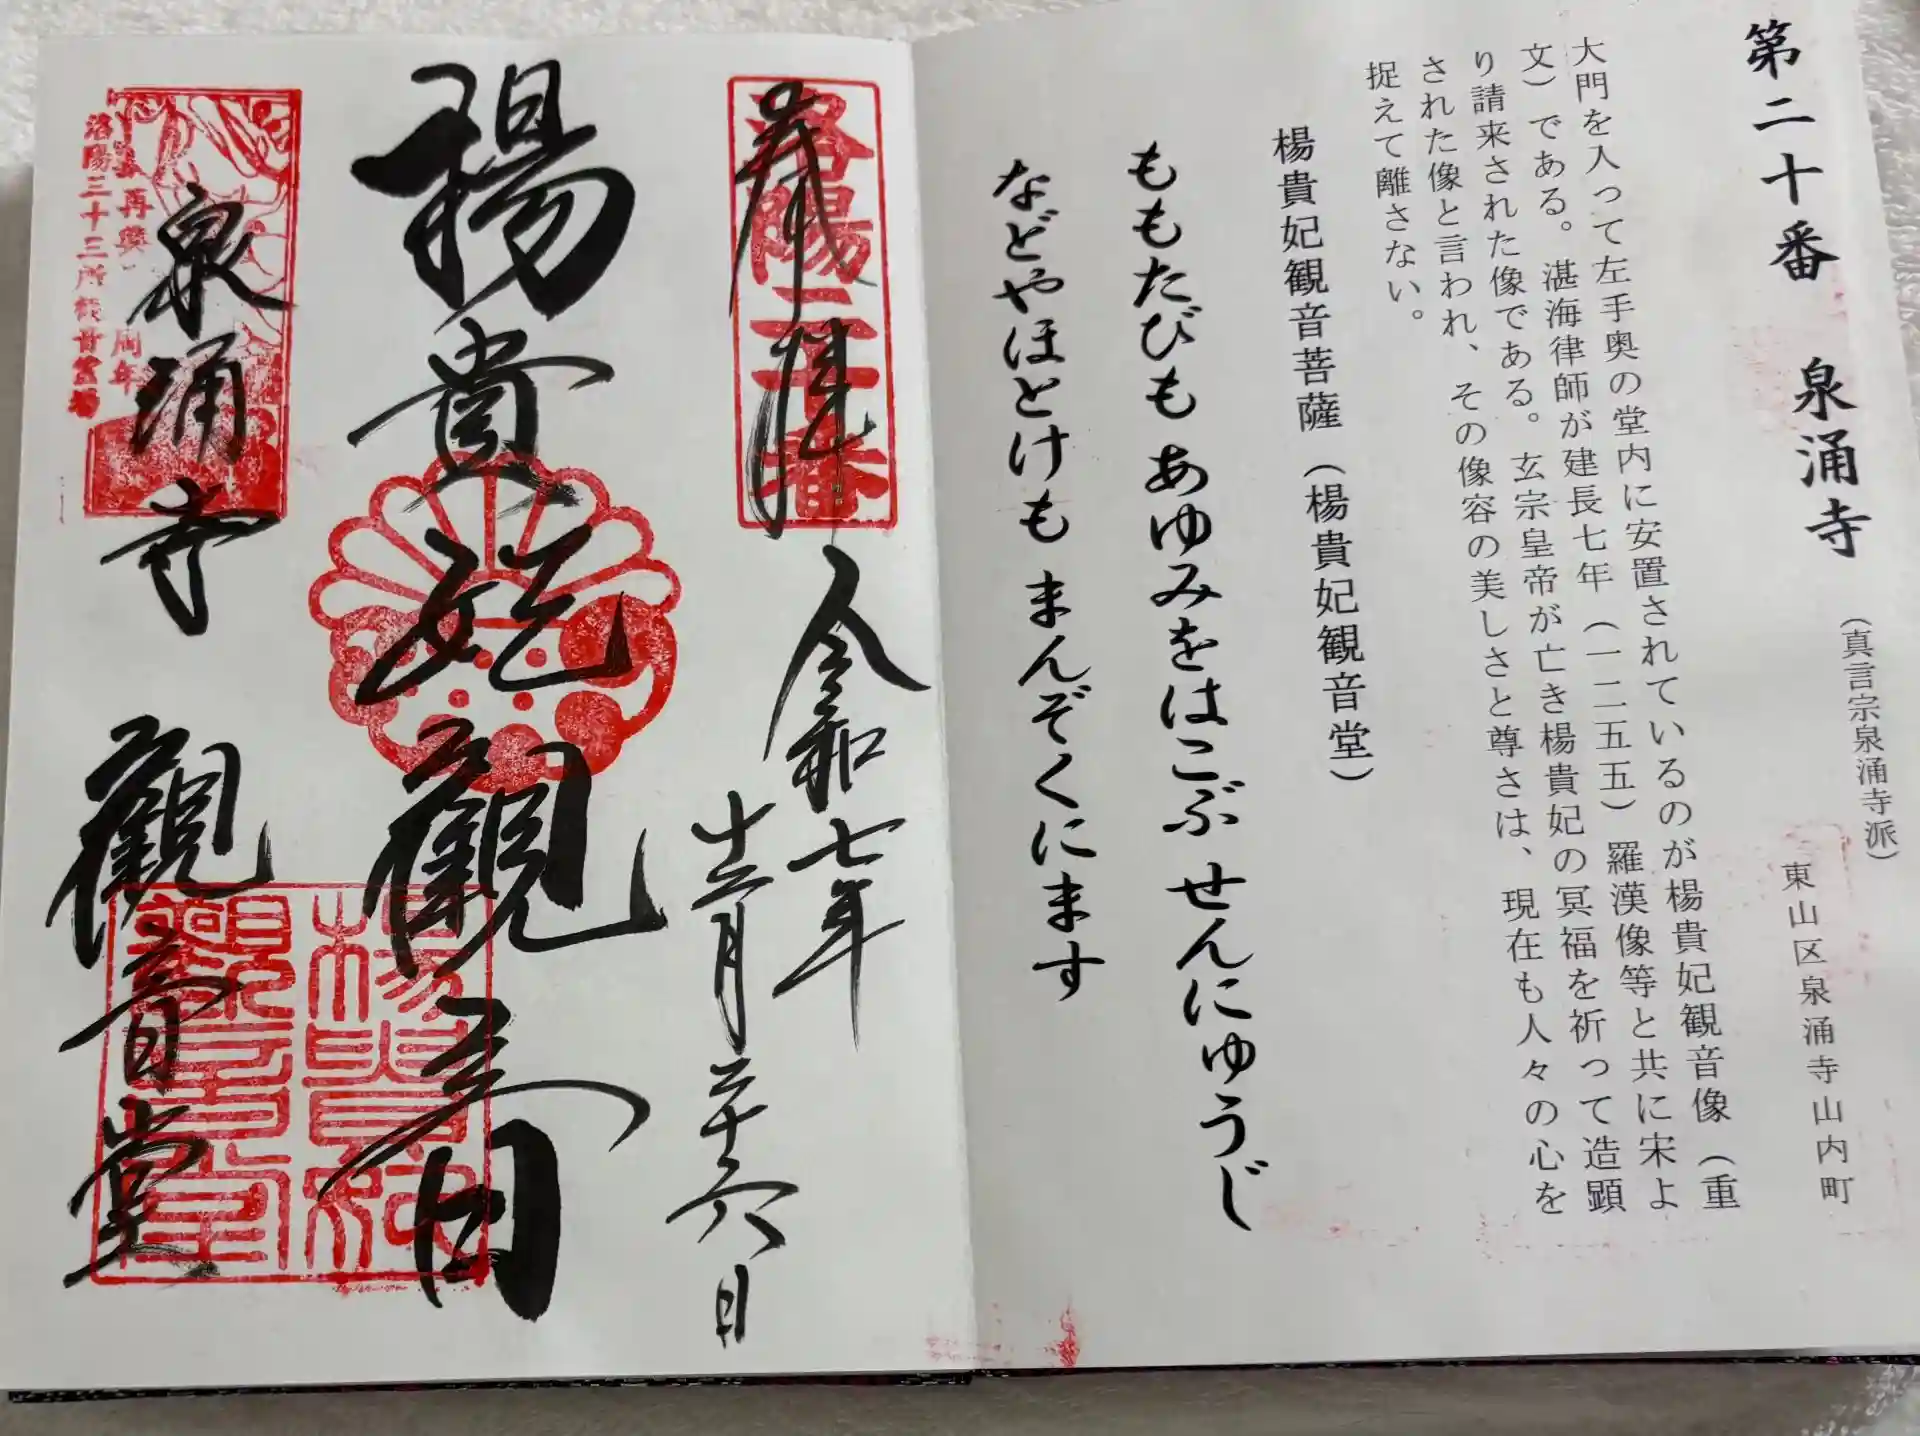 第二十番 泉涌寺 (真言宗泉涌寺派)
東山区泉涌寺山内町
大門を入って左手奥の堂内に安置されているのが楊貴妃観音像(重
文)である。湛海律師が建長七年(一二五五)羅漢像等と共に宋よ
り請来された像である。玄宗皇帝が亡き楊貴妃の冥福を祈って造顕
された像と言われ、その像容の美しさと尊さは、現在も人々の心を
捉えて離さない。
楊貴妃観音菩薩(楊貴妃観音堂)
ももたびも あゆみをはこぶ せんにゆうじ
などやほとけも まんぞくにます
洛陽二十番
奉拝
令和七年
十二月二十六日
楊貴妃觀音
楊貴妃觀音堂
泉涌寺
觀音堂
再興
周年
洛陽三十三所観音霊場